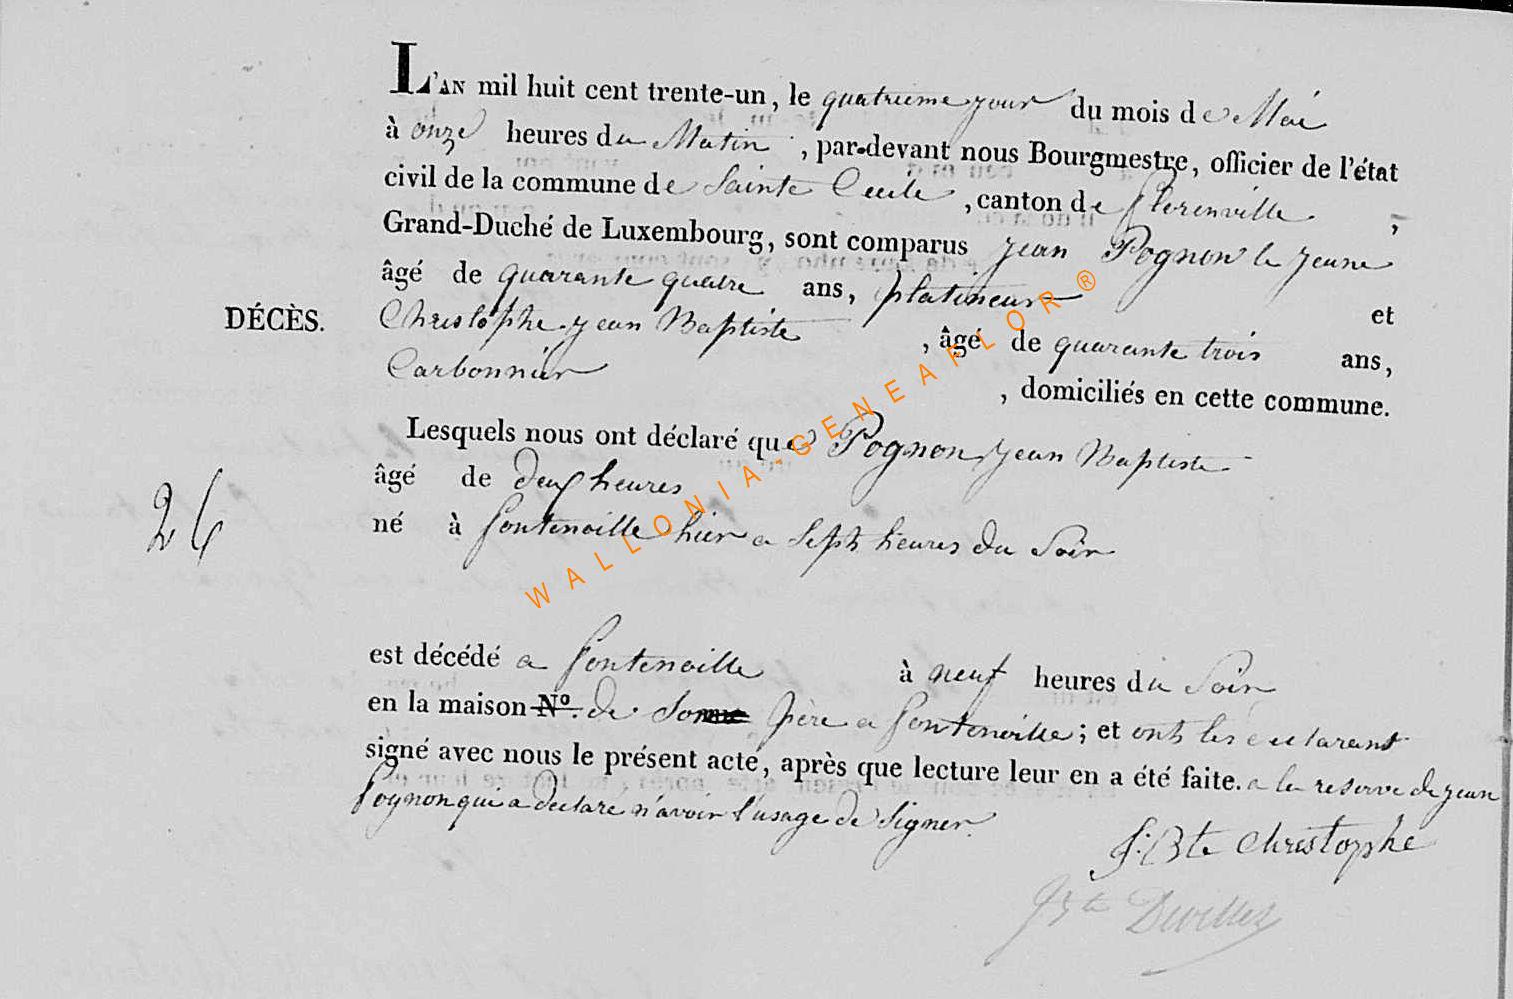 L'AN mil huit cent trente-un, le quatrieme jour du mois de Mai
à onze heures du Matin, par-devant nous Bourgmestre, officier de l'état
civil de la commune de Sainte Cecile, canton de florenville,
Grand-Duché de Luxembourg, sont comparus jean Pognon le jeune
âgé de quarante quatre ans, platineur et
DÉCÈS.
Christophe jean Baptiste, âgé de quarante trois ans,
Carbonnier, domiciliés en cette commune.
Lesquels nous ont déclaré que Pognon jean Baptiste
âgé de deux heures
26
né à fontenoille hier a sept heures du Soir
est décédé a fontenoille à neuf heures du Soir
en la maison N°. de son père a fontenoille; et ont les declarant
signé avec nous le présent acte, après que lecture leur en a été faite. a la reserve de jean
Pognon qui a declare n'avoir l'usage de Signer.
J. Bte Christophe
JBte Devillez
WALLONIA-GENEAFLOR®